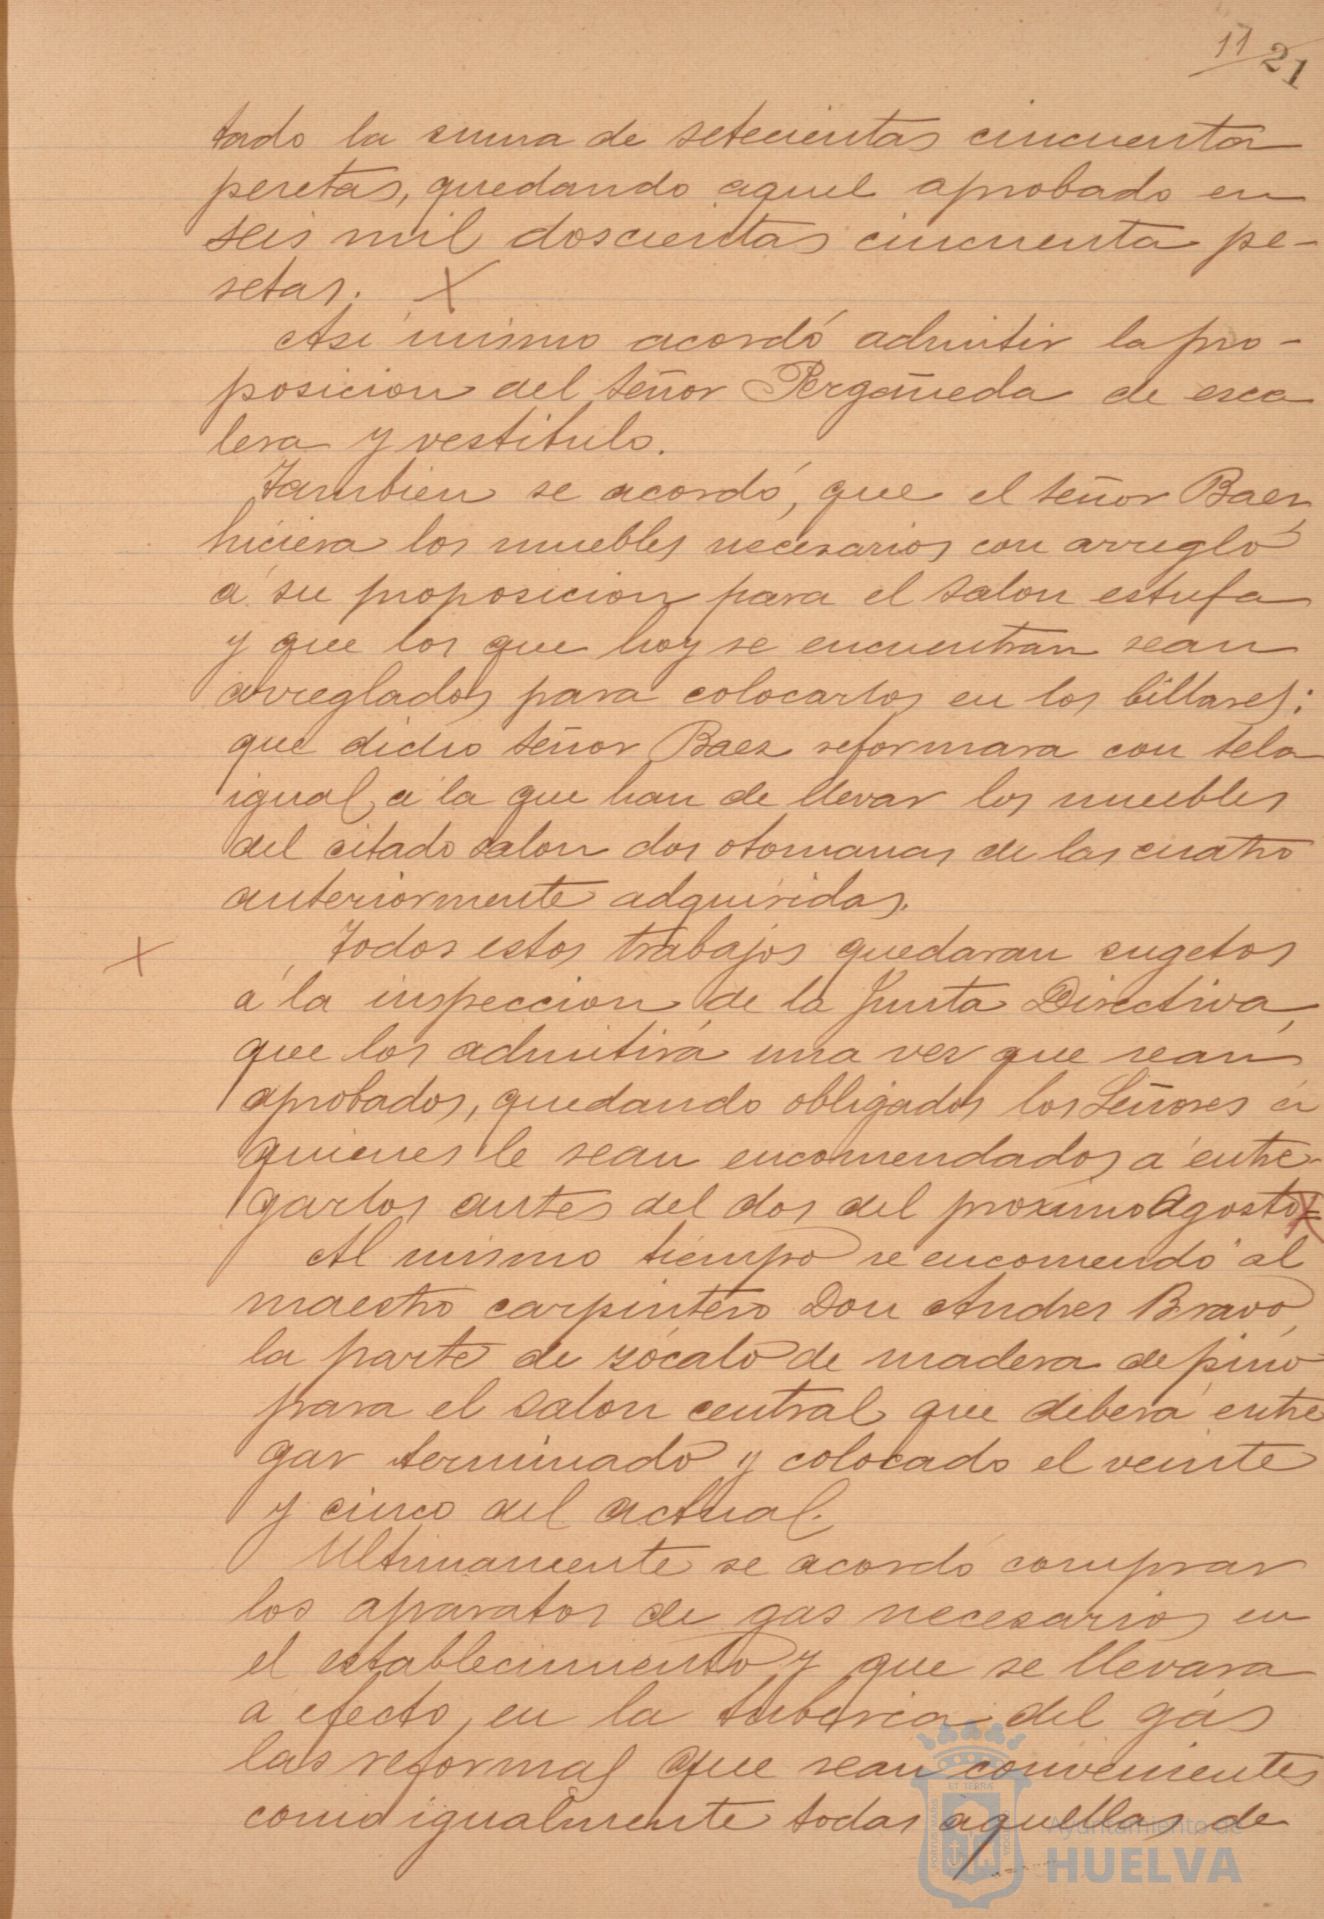 11 21
tado la suma de setecientas cincuenta
pesetas, quedando aquel aprobado en
seis mil doscientas cincuenta pe-
setas. X
Asi mismo acordó admitir la pro-
posicion del señor Pergañeda de esca
lera y vestitulo.
Tambien se acordó, que el señor Baez
hiciera los muebles necesarios con arreglo
á su proposicion para el salon estufa
y que los que hoy se encuentran sean
arreglados para colocarlos en los billares;
que dicho señor Baez reformara con tela
igual á la que han de llevar los muebles
del citado salon dos otomanas de las cuatro
anteriormente adquiridas.
X Todos estos trabajos quedaran sugetos
á la inspeccion de la Junta Directiva,
que los admitirá una vez que sean
aprobados, quedando obligados los Señores á
quienes le sean encomendados á entre-
garlos antes del dos del proximo Agosto X
Al mismo tiempo se encomendó al
maestro carpintero Don Andres Bravo,
la parte de zócalo de madera de pino
para el salon central que deberá entre
gar terminado y colocado el veinte
y cinco del actual.
Ultimamente se acordó comprar
los aparatos de gas necesarios en
el establecimiento y que se llevara
a efecto, en la tuberia del gás
las reformas que sean convenientes
como igualmente todas aquellas de
PORTUS MARIS ET TERRAE CUSTODIA
Ayuntamiento de
HUELVA